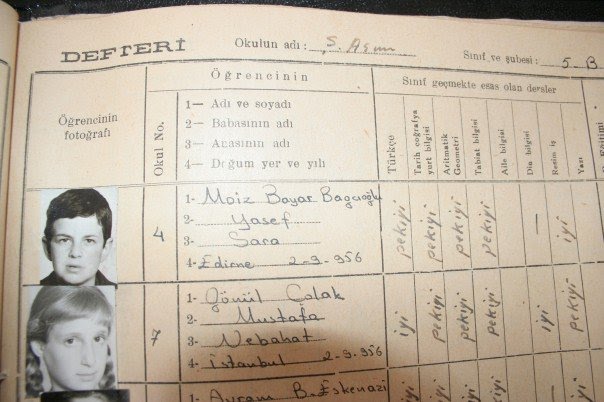 DEFTERİ
Okulun adı : Ş. Asım
Sınıf ve şubesi : 5. B
Öğrencinin fotoğrafı
Okul No.
Öğrencinin
1— Adı ve soyadı
2— Babasının adı
3— Anasının adı
4— Doğum yer ve yılı
Sınıf geçmekte esas olan dersler
Türkçe
Tarih coğrafya yurt bilgisi
Aritmatik Geometri
Tabiat bilgisi
Aile bilgisi
Din bilgisi
Resim iş
Yazı
4
1- Moiz Bayar Bağcıoğlu
2- Yasef
3- Sara
4- Edirne 2-9-956
pekiyi pekiyi pekiyi pekiyi — iyi
7
1- Gönül Çolak
2- Mustafa
3- Nebahat
4- İstanbul 2-9-956
iyi pekiyi pekiyi pekiyi — iyi pekiyi
1- Avram B. Eskenazi